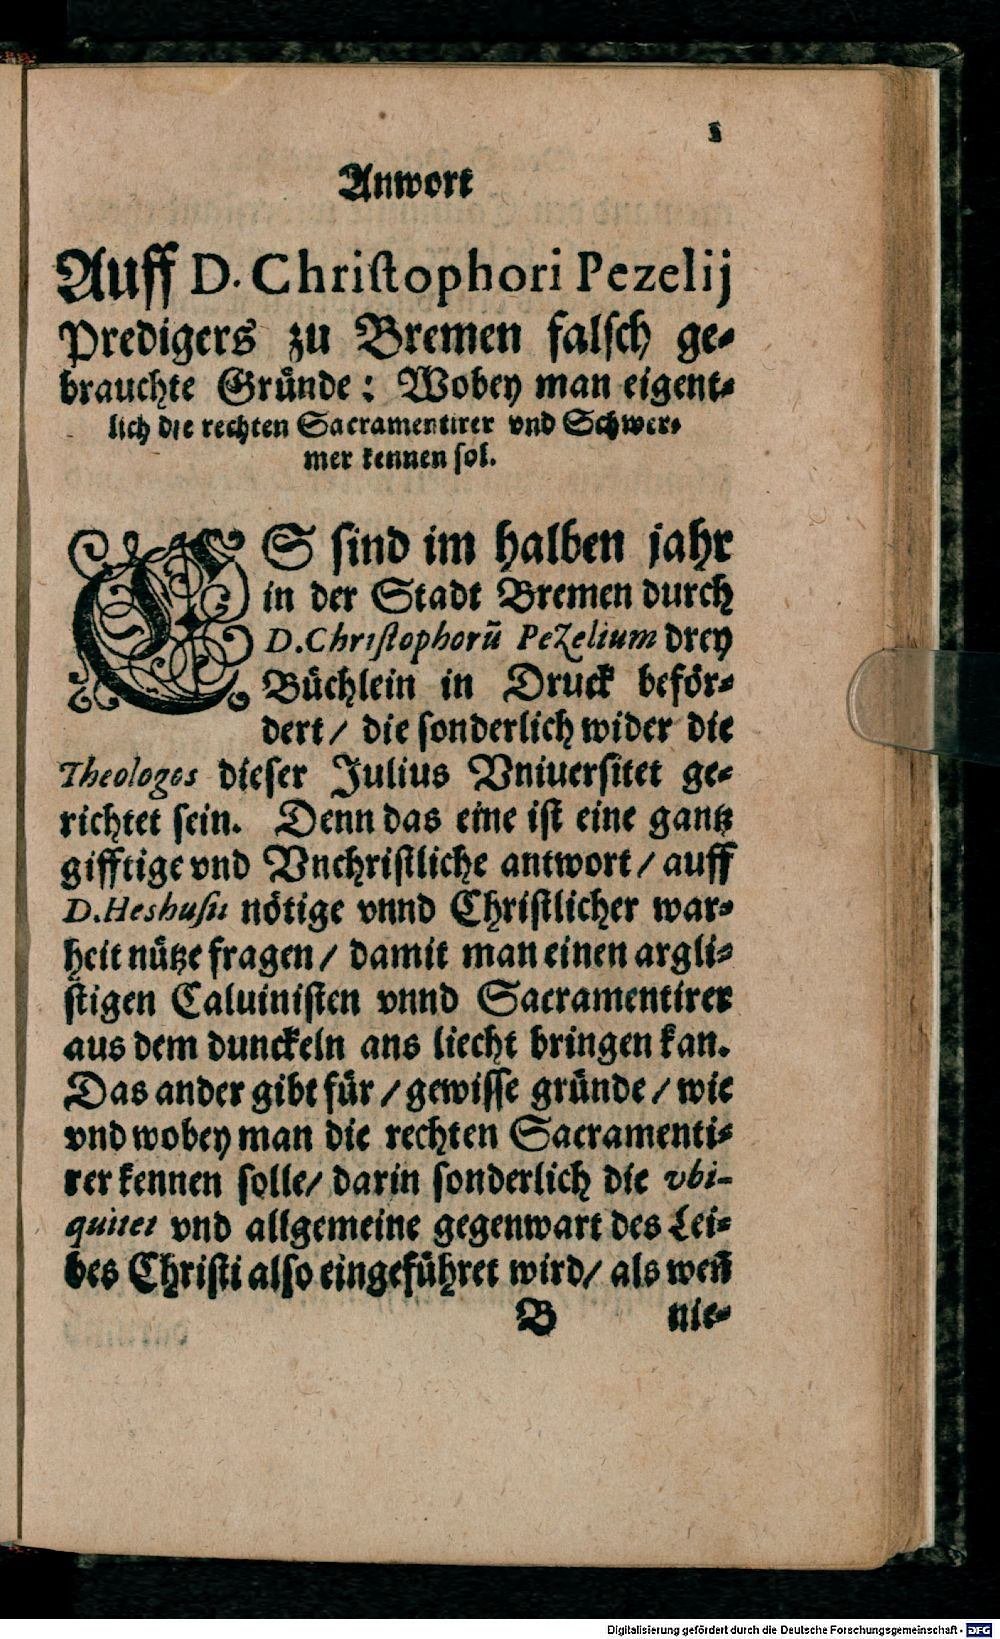 1
Anwort
Auff D. Christophori Pezelij
Predigers zu Bremen falsch ge-
brauchte Gründe: Wobey man eigent-
lich die rechten Sacramentirer vnd Schwer-
mer kennen sol.
ES sind im halben jahr
in der Stadt Bremen durch
D. Christophorū Pezelium drey
Büchlein in Druck beför-
dert/ die sonderlich wider die
Theologos dieser Julius Vniuersitet ge-
richtet sein. Denn das eine ist eine gantz
gifftige vnd Vnchristliche antwort/ auff
D. Heshusii nötige vnnd Christlicher war-
heit nütze fragen/ damit man einen argli-
stigen Caluinisten vnnd Sacramentirer
aus dem dunckeln ans liecht bringen kan.
Das ander gibt für/ gewisse gründe/ wie
vnd wobey man die rechten Sacramenti-
rer kennen solle/ darin sonderlich die vbi-
quitet vnd allgemeine gegenwart des Lei-
bes Christi also eingeführet wird/ als weñ
B nie-
Digitalisierung gefördert durch die Deutsche Forschungsgemeinschaft - DFG